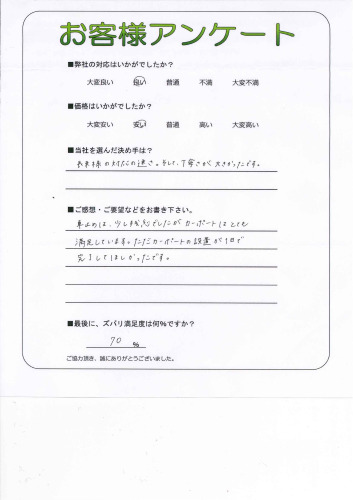 お客様アンケート
■弊社の対応はいかがでしたか？
大変良い 良い 普通 不満 大変不満
■価格はいかがでしたか？
大変安い 安い 普通 高い 大変高い
■当社を選んだ決め手は？
の対応の速さ。そして、丁寧さが大きかったです。
■ご感想・ご要望などをお書き下さい。
車止めは、少し残念でしたがカーポートはとても
満足しています。ただカーポートの設置が1日で
完了してほしかったです。
■最後に、ズバリ満足度は何％ですか？
70 %
ご協力頂き、誠にありがとうございました。